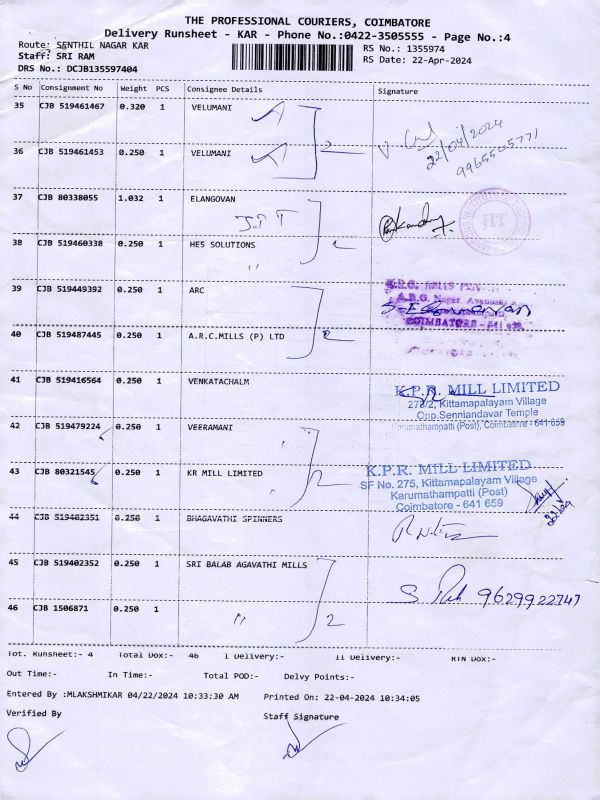 THE PROFESSIONAL COURIERS, COIMBATORE
Delivery Runsheet - KAR - Phone No.:0422-3505555 - Page No.:4
Route: SENTHIL NAGAR KAR
RS No.: 1355974
Staff: SRI RAM
RS Date: 22-Apr-2024
DRS No.: DCJB135597404
S No Consignment No Weight PCS Consignee Details Signature
35 CJB 519461467 0.320 1 VELUMANI
22/04/2024
36 CJB 519461453 0.250 1 VELUMANI 2
9965505771
37 CJB 80338055 1.032 1 ELANGOVAN
JIT
38 CJB 519460338 0.250 1 HE5 SOLUTIONS 2
"
39 CJB 519449392 0.250 1 ARC
COIMBATORE - 641
40 CJB 519487445 0.250 1 A.R.C.MILLS (P) LTD 2
41 CJB 519416564 0.250 1 VENKATACHALM
K.P.R. MILL LIMITED
273/2, Kittamapalayam Village
Opp.Senniandavar Temple
Karumathampatti (Post), Coimbatore - 641 659
42 CJB 519479224 0.250 1 VEERAMANI
43 CJB 80321545 0.250 1 KR MILL LIMITED 2
K.P.R. MILL LIMITED
SF No. 275, Kittamapalayam Village
Karumathampatti (Post)
Coimbatore - 641 659
44 CJB 519402351 0.250 1 BHAGAVATHI SPINNERS
45 CJB 519402352 0.250 1 SRI BALAB AGAVATHI MILLS
9629922747
46 CJB 1506871 0.250 1 " 2
Tot. Runsheet:- 4 Total Dox:- 46 I Delivery:- II Delivery:- RTN Dox:-
Out Time:- In Time:- Total POD:- Delvy Points:-
Entered By :MLAKSHMIKAR 04/22/2024 10:33:30 AM Printed On: 22-04-2024 10:34:05
Verified By Staff Signature